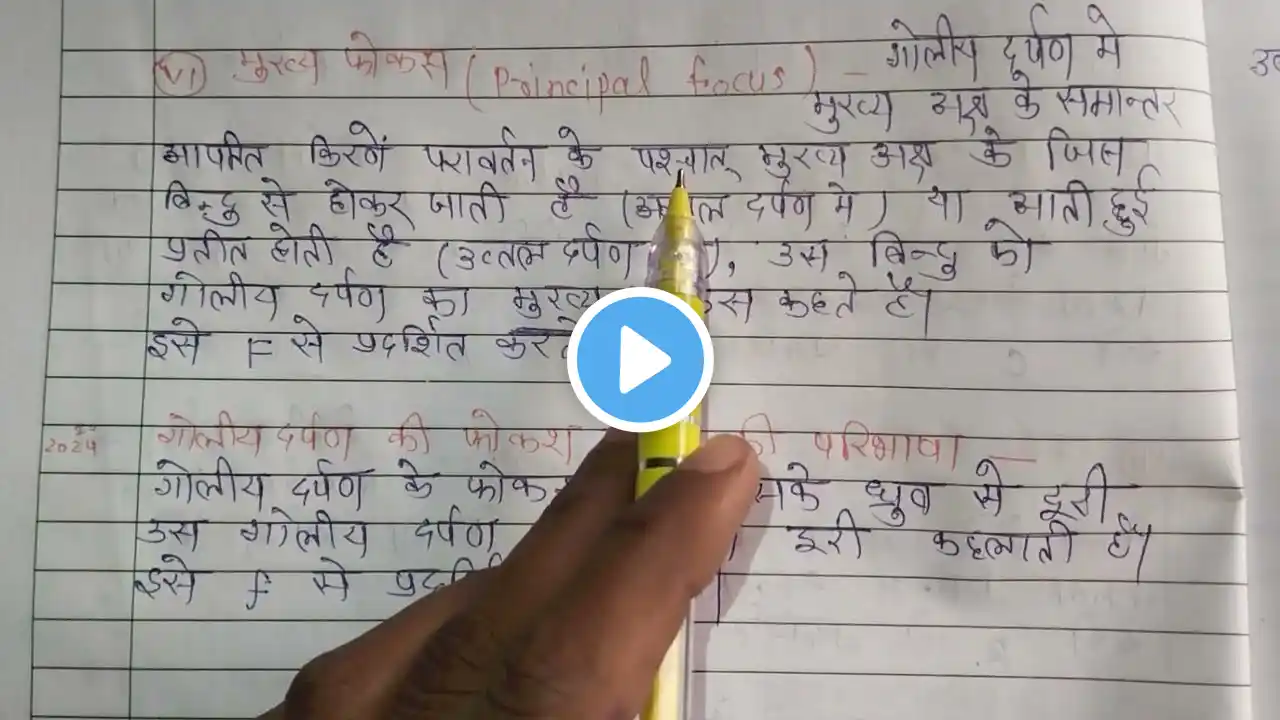 (vi) मुख्य फोकस (Principal focus) – गोलीय दर्पण मे
मुख्य अक्ष के समान्तर
आपतित किरणें परावर्तन के पश्चात् मुख्य अक्ष के जिस
बिन्दु से होकर जाती है (अवतल दर्पण मे) या आती हुई
प्रतीत होती है (उत्तल दर्पण), उस बिन्दु को
गोलीय दर्पण का मुख्य कहते है।
इसे F से प्रदर्शित
2024 गोलीय दर्पण की फोकश की परिभाषा –
गोलीय दर्पण के ध्रुव से दूरी
उस गोलीय दर्पण दूरी कहलाती है।
इसे f से